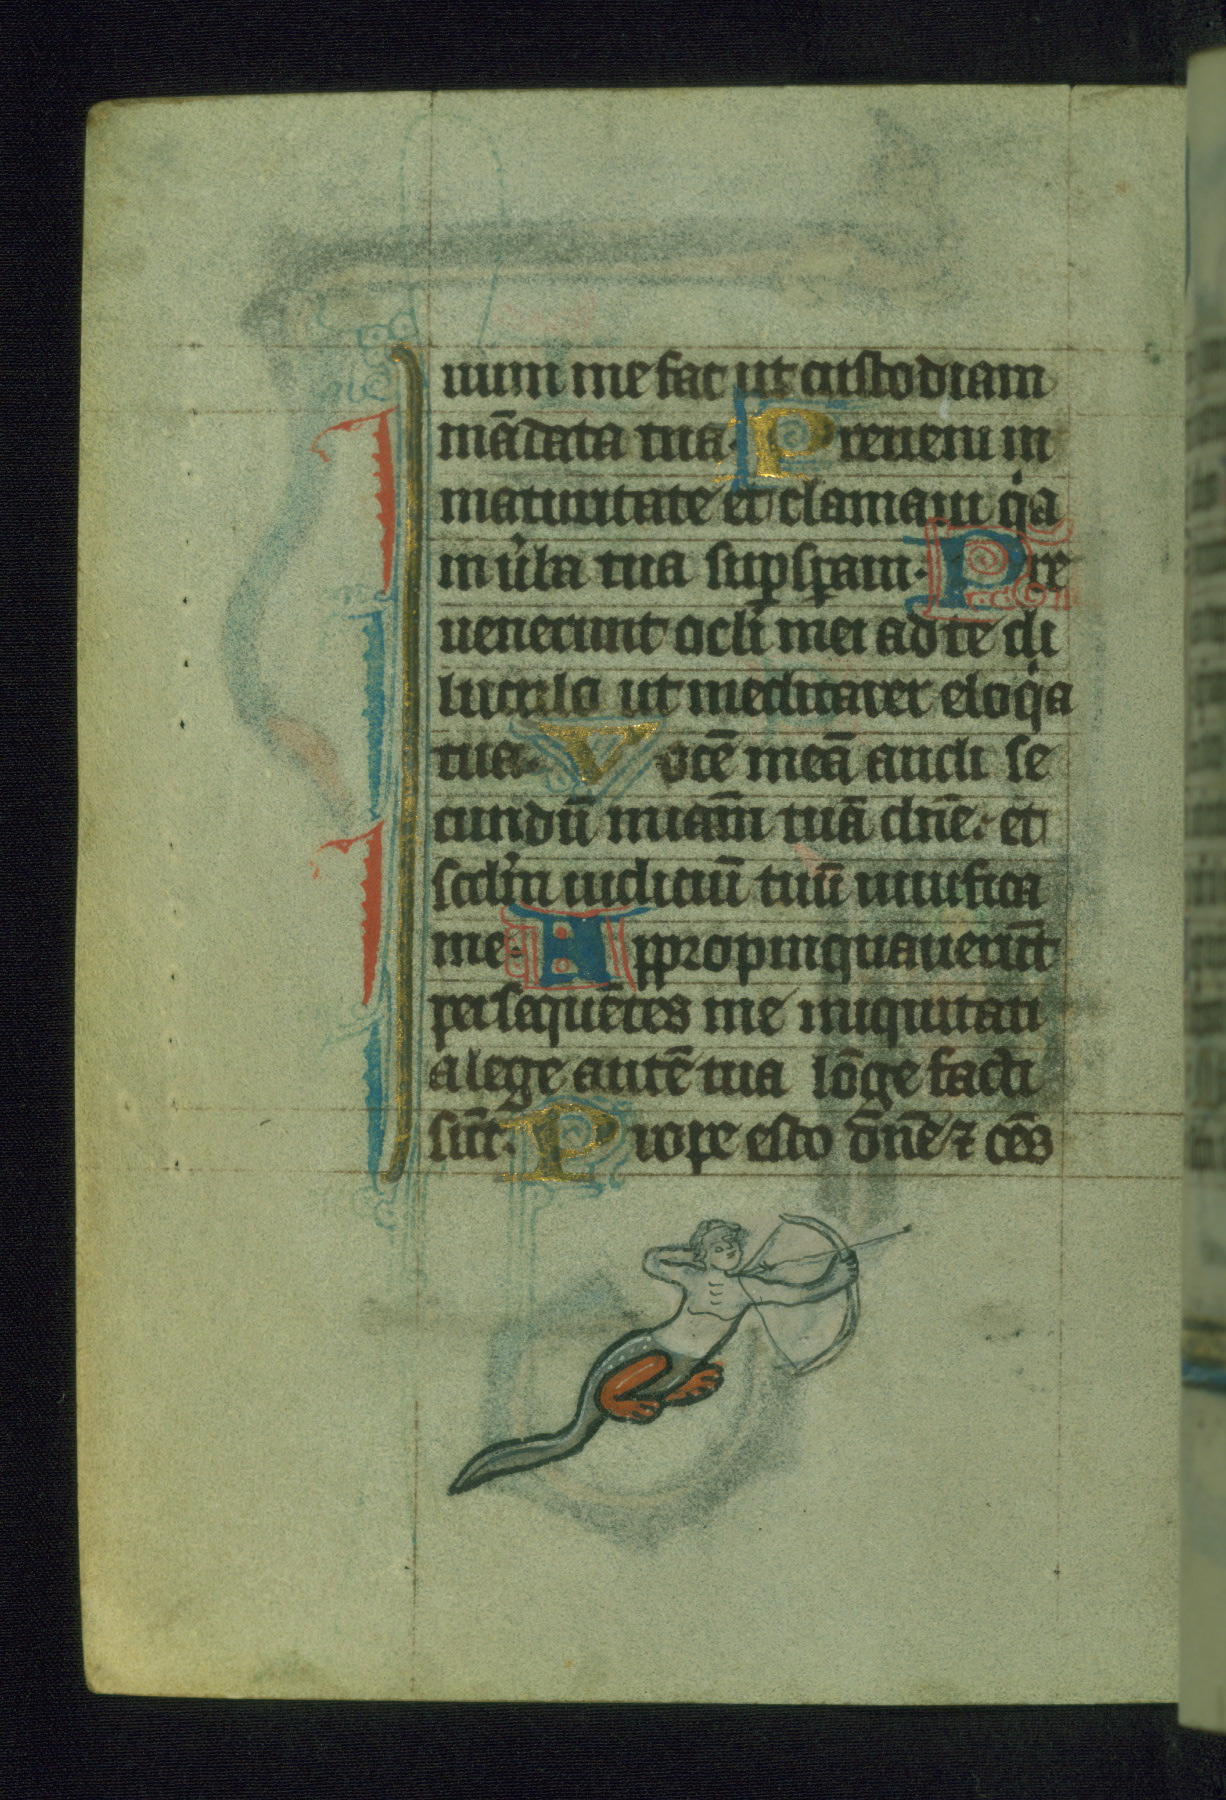 uum me fac ut custodiam
mādata tua. Preueni in
maturitate et clamaui q̇a
in u̇ba tua suꝑsꝑaui. Pre
uenerunt ocli mei ad te di
luculo ut meditarer eloq̇a
tua. Uocē meā audi se
cundū miām tuā dn̄e. et
scdm̄ iudiciū tuū uiuifica
me. Appropinquauerūt
persequētes me iniquitati
a lege autē tua lōge facti
sūt. Prope esto dn̄e ⁊ oēs